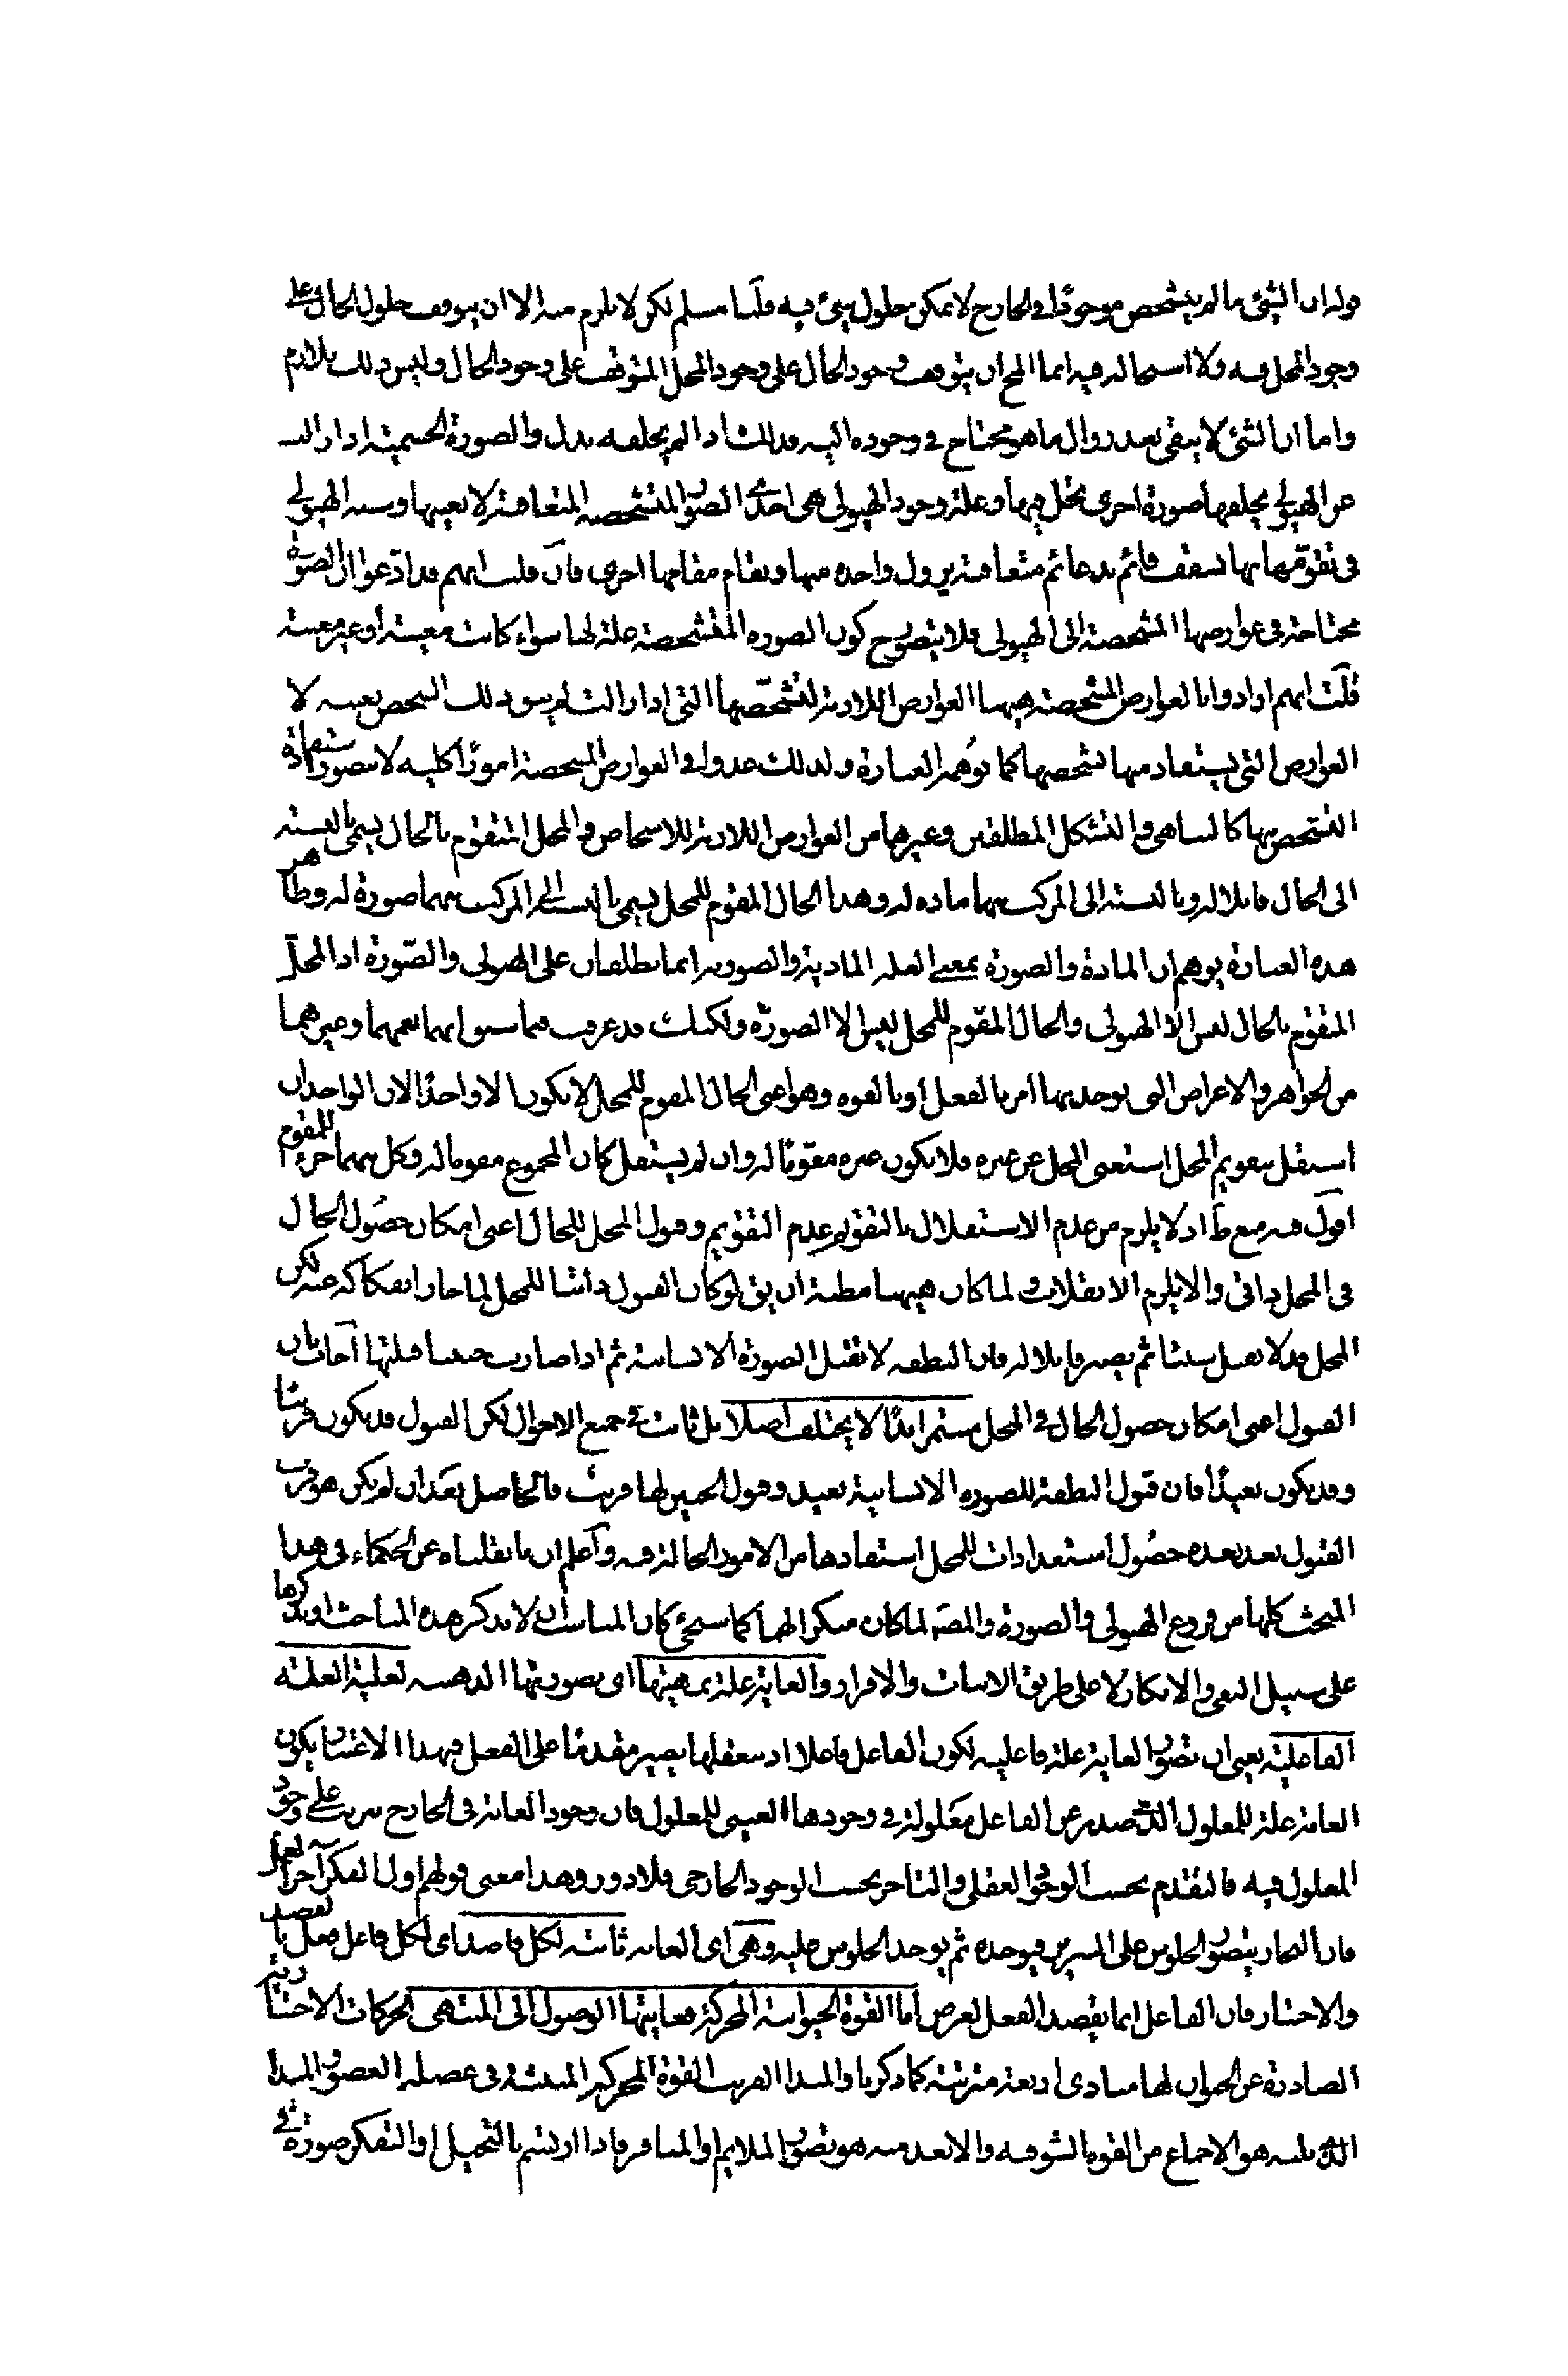 قوله ان الشئ ما لم يتشخص موجودًا في الخارج لا يمكن حلول شئ فيه قلنا مسلم لكن لا يلزم منه الا ان يتوقف حلول الحال على
وجود المحل فيه ولا استحاله فيه انما المح ان يتوقف وجود الحال على وجود المحل المتوقف على وجود الحال وليس ذلك بلازم
واما ان الشئ لا يبقى بعد زوال ما هو محتاج في وجوده اليه فذلك اذا لم يخلفه بدل والصورة الجسمية اذا زالت
عن الهيولي يخلفها صورة اخرى تحل فيها وعلة وجود الهيولى هى احدى الصور المتشخصه المتعاقبة لا بعينها وسبه الهيولى
فى تقوّمها بها بسقف قائم بدعائم متعاقبة يزول واحده منها ويقام مقامها اخرى فان قلت انهم قد ادّعوا ان الصورة
محتاجة فى عوارضها المشخصة الى الهيولى فلا يتصور ح كون الصوره المتشخصة علة لها سواء كانت معينة او غير معينة
قلت انهم ارادوا بالعوارض المشخصة ههنا العوارض اللازمة لتشخّصها التى اذا زالت لم يبق ذلك الشخص بعينه لا
العوارض التى يستفاد منها تشخصها كما توهمه العبارة ولذلك عدوا في العوارض المشخصة امورًا كليه لا يتصور استفادة
التشخص بها كالتناهى والتشكل المطلقين وغيرهما من العوارض اللازمة للاشخاص والمحل المتقوم بالحال يسمى بالنسبة
الى الحال قابلا له وبالنسبة الى المركب منهما ماده له وهذا الحال المقوم للمحل يسمى بالنسبة الى المركب منهما صورة له وظاهر
هذه العبارة يوهم ان المادة والصورة بمعنى العله المادية والصوريه انما يطلقان على الهيولى والصّورة اذ المحل
المتقوم بالحال ليس الا الهيولى والحال المقوم للمحل ليس الا الصورة ولكنك قد عرفت فيما سبق انهما تعمهما وغيرهما
من الجواهر والاعراض التى يوجد بها امر بالفعل او بالقوه وهو اعنى الحال المقوم للمحل لا يكون الا واحدًا لان الواحد ان
استقل بتقويم المحل استغنى المحل عن غيره فلا يكون غيره مقومًا له وان لم يستقل كان المجموع مقوما له وكل منهما جزء للمقوم
اقول فيه منع ظ اذ لا يلزم من عدم الاستقلال بالتقويم عدم التقويم وقبول المحل للحال اعنى امكان حصول الحال
فى المحل ذاتى والا يلزم الانقلاب ولما كان ههنا مظنة ان يق لو كان القبول ذاتيا للمحل لما جاز انفكاكه عنه لكن
المحل قد لا يقبل شيئا ثم يصير قابلا له فان النطفه لا تقبل الصورة الانسانية ثم اذا صارت جنينا قبلتها اجاب بان
القبول اعنى امكان حصول الحال في المحل مستمر ابدًا لا يختلف اصلا بل ثابت في جميع الاحوال لكن القبول قد يكون قريبًا
وقد يكون بعيدًا فان قبول النطفة للصوره الانسانية بعيد وقبول الجنين لها قريب فالحاصل بعد ان لم يكن هو قرب
القبول بعد بعده حصُول استعدادات للمحل استفادها من الامور الحالة فيه واعلم ان ما نقلناه عن الحكماء فى هذا
المبحث كلها من فروع الهيولى والصورة والمصَ لما كان منكرا لهما كما سيجئ كان المناسب ان لا يذكر هذه المباحث او يذكرها
على سبيل النفى والانكار لا على طريق الاثبات والاقرار والغاية علة بمهيتها اى بصورتها الذهنيه لعلية العلة
الفاعلية يعنى ان تصور الغاية علة فاعليه لكون الفاعل فاعلا اذ بتعقلها يصير مقدمًا على الفعل فبهذا الاعتبار يكون
الغاية علة للمعلول الذى صدر عن الفاعل معلولة في وجودها العينى للمعلول فان وجود الغاية فى الخارج مترتب على وجود
المعلول فيه فالتقدم بحسب الوجود العقلى والتاخر بحسب الوجود الخارجى فلا دور وهذا معنى قولهم اول الفكر آخر العمل
فان النجار يتصور الجلوس على السرير فيوجده ثم يوجد الجلوس عليه وهى اى الغايه ثابته لكل قاصد اى لكل فاعل فعل بالقصد
والاختيار فان الفاعل انما يقصد الفعل لغرض اما القوة الحيوانية المحركة فغايتها الوصول الى المنتهى الحركات الاختيارية
الصادرة عن الحيوان لها مبادى اربعة مترتبة كما ذكرنا والمبدا القريب القوة المحركة المنبثة فى عضلة العضو والمبدا
الذى يليه هو الاجماع من القوه الشوقيه والابعد منه هو تصور الملايم او المنافر فاذا ارتسم بالتخيل او التفكر صورة في